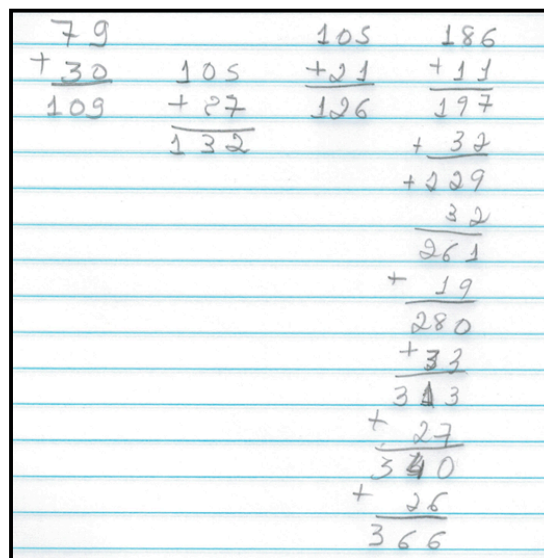 79
+ 30
109
105
+ 27
132
105
+21
126
186
+11
197
+ 32
+229
32
261
+ 19
280
+33
313
+ 27
340
+ 26
366